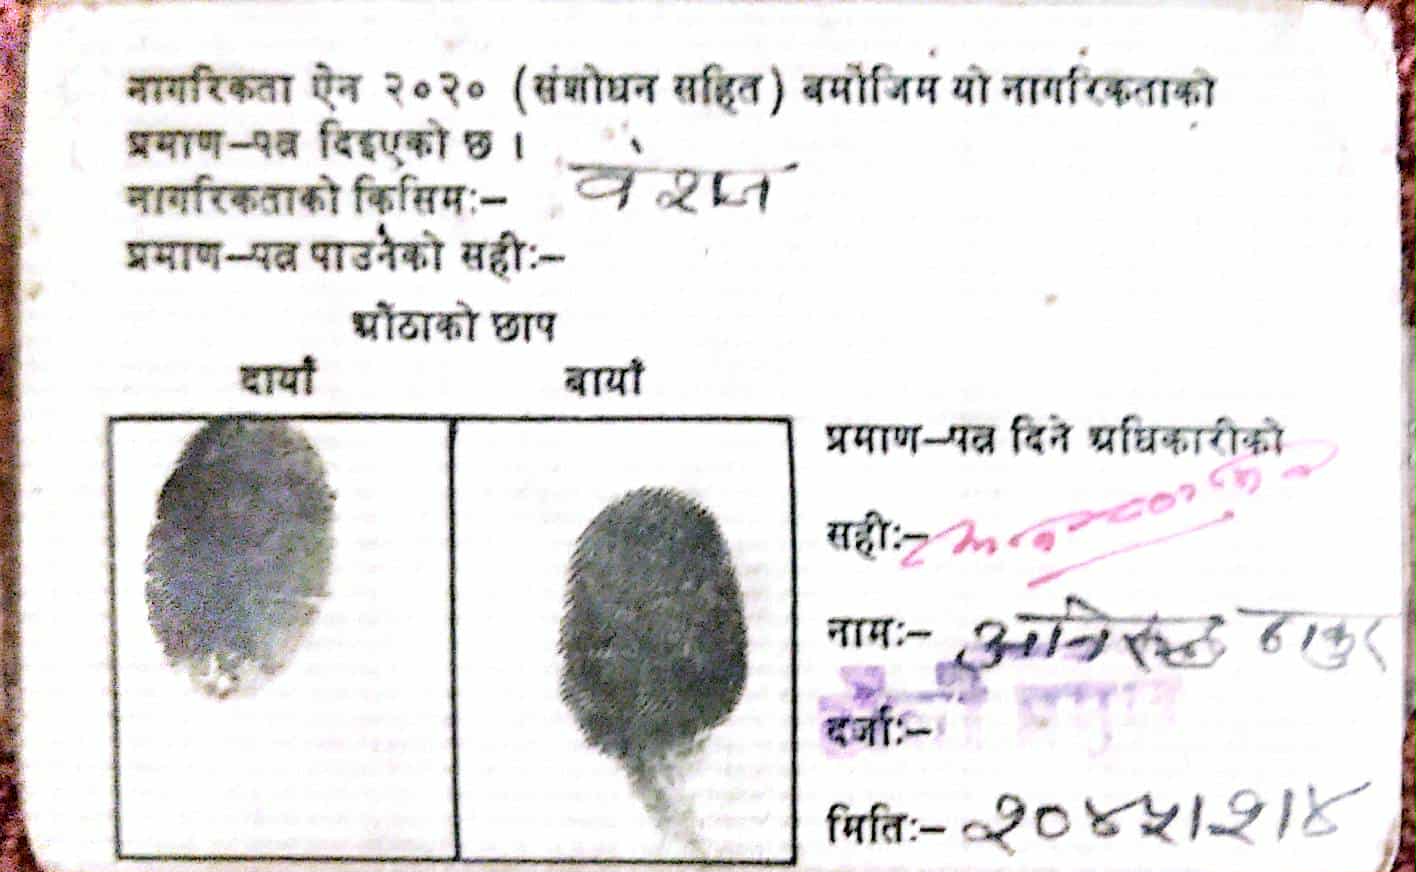 नागरिकता ऐन २०२० (संशोधन सहित) बमोजिम यो नागरिकताको
प्रमाण-पत्र दिइएको छ ।
नागरिकताको किसिम:- वंशज
प्रमाण-पत्र पाउनेको सही:-
औंठाको छाप
दायाँ बायाँ
प्रमाण-पत्र दिने अधिकारीको
सही:-
नाम:- अनिरुद्ध ठाकुर
दर्जा:-
मिति:- २०४५।२।४